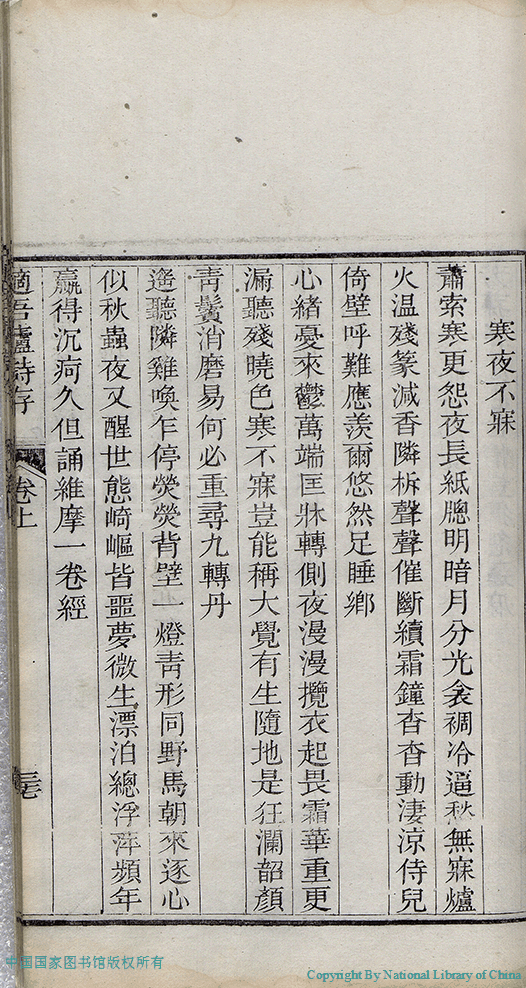 寒夜不寐
蕭索寒更怨夜長紙牕明暗月分光衾裯冷逼秋無寐爐
火温殘篆減香隣柝聲聲催斷續霜鐘杳杳動淒涼侍兒
倚壁呼難應羨爾悠然足睡鄉
心緒憂來鬱萬端匡牀轉側夜漫漫攬衣起畏霜華重更
漏聽殘曉色寒不寐豈能稱大覺有生隨地是狂瀾韶顏
靑鬢消磨易何必重尋九轉丹
遙聽隣雞喚乍停熒熒背壁一燈靑形同野馬朝來逐心
似秋蟲夜又醒世態崎嶇皆噩夢微生漂泊總浮萍頻年
嬴得沉疴久但誦維摩一卷經
適吾廬詩存
卷上
三七
中国国家图书馆版权所有
Copyright By National Library of China